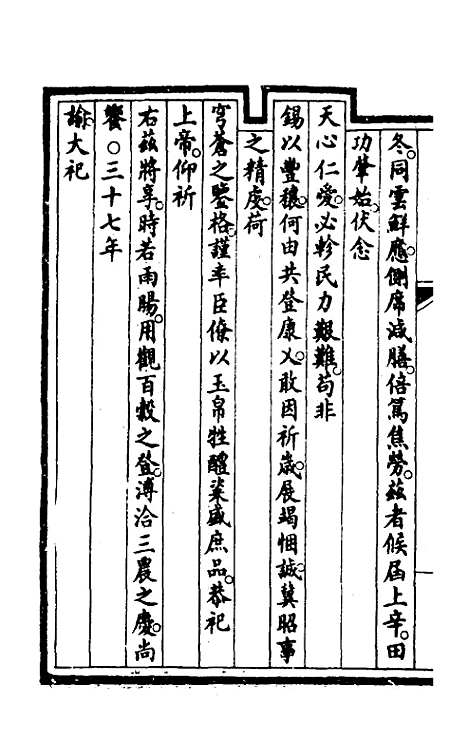 冬。同雲鮮應。側席減膳。倍篤焦勞。茲者候屆上辛。田
功肈始。伏念
天心仁愛。必軫民力艱難。苟非
錫以豐穰。何由共登康乂。敢因祈歲。展竭悃誠。冀昭事
之精虔。荷
穹蒼之鑒格。謹率臣僚以玉帛牲醴粢盛庶品。恭祀
上帝。仰祈
右茲將享。時若雨暘。用觀百穀之登。溥洽三農之慶。尚
饗。○三十七年
諭大祀